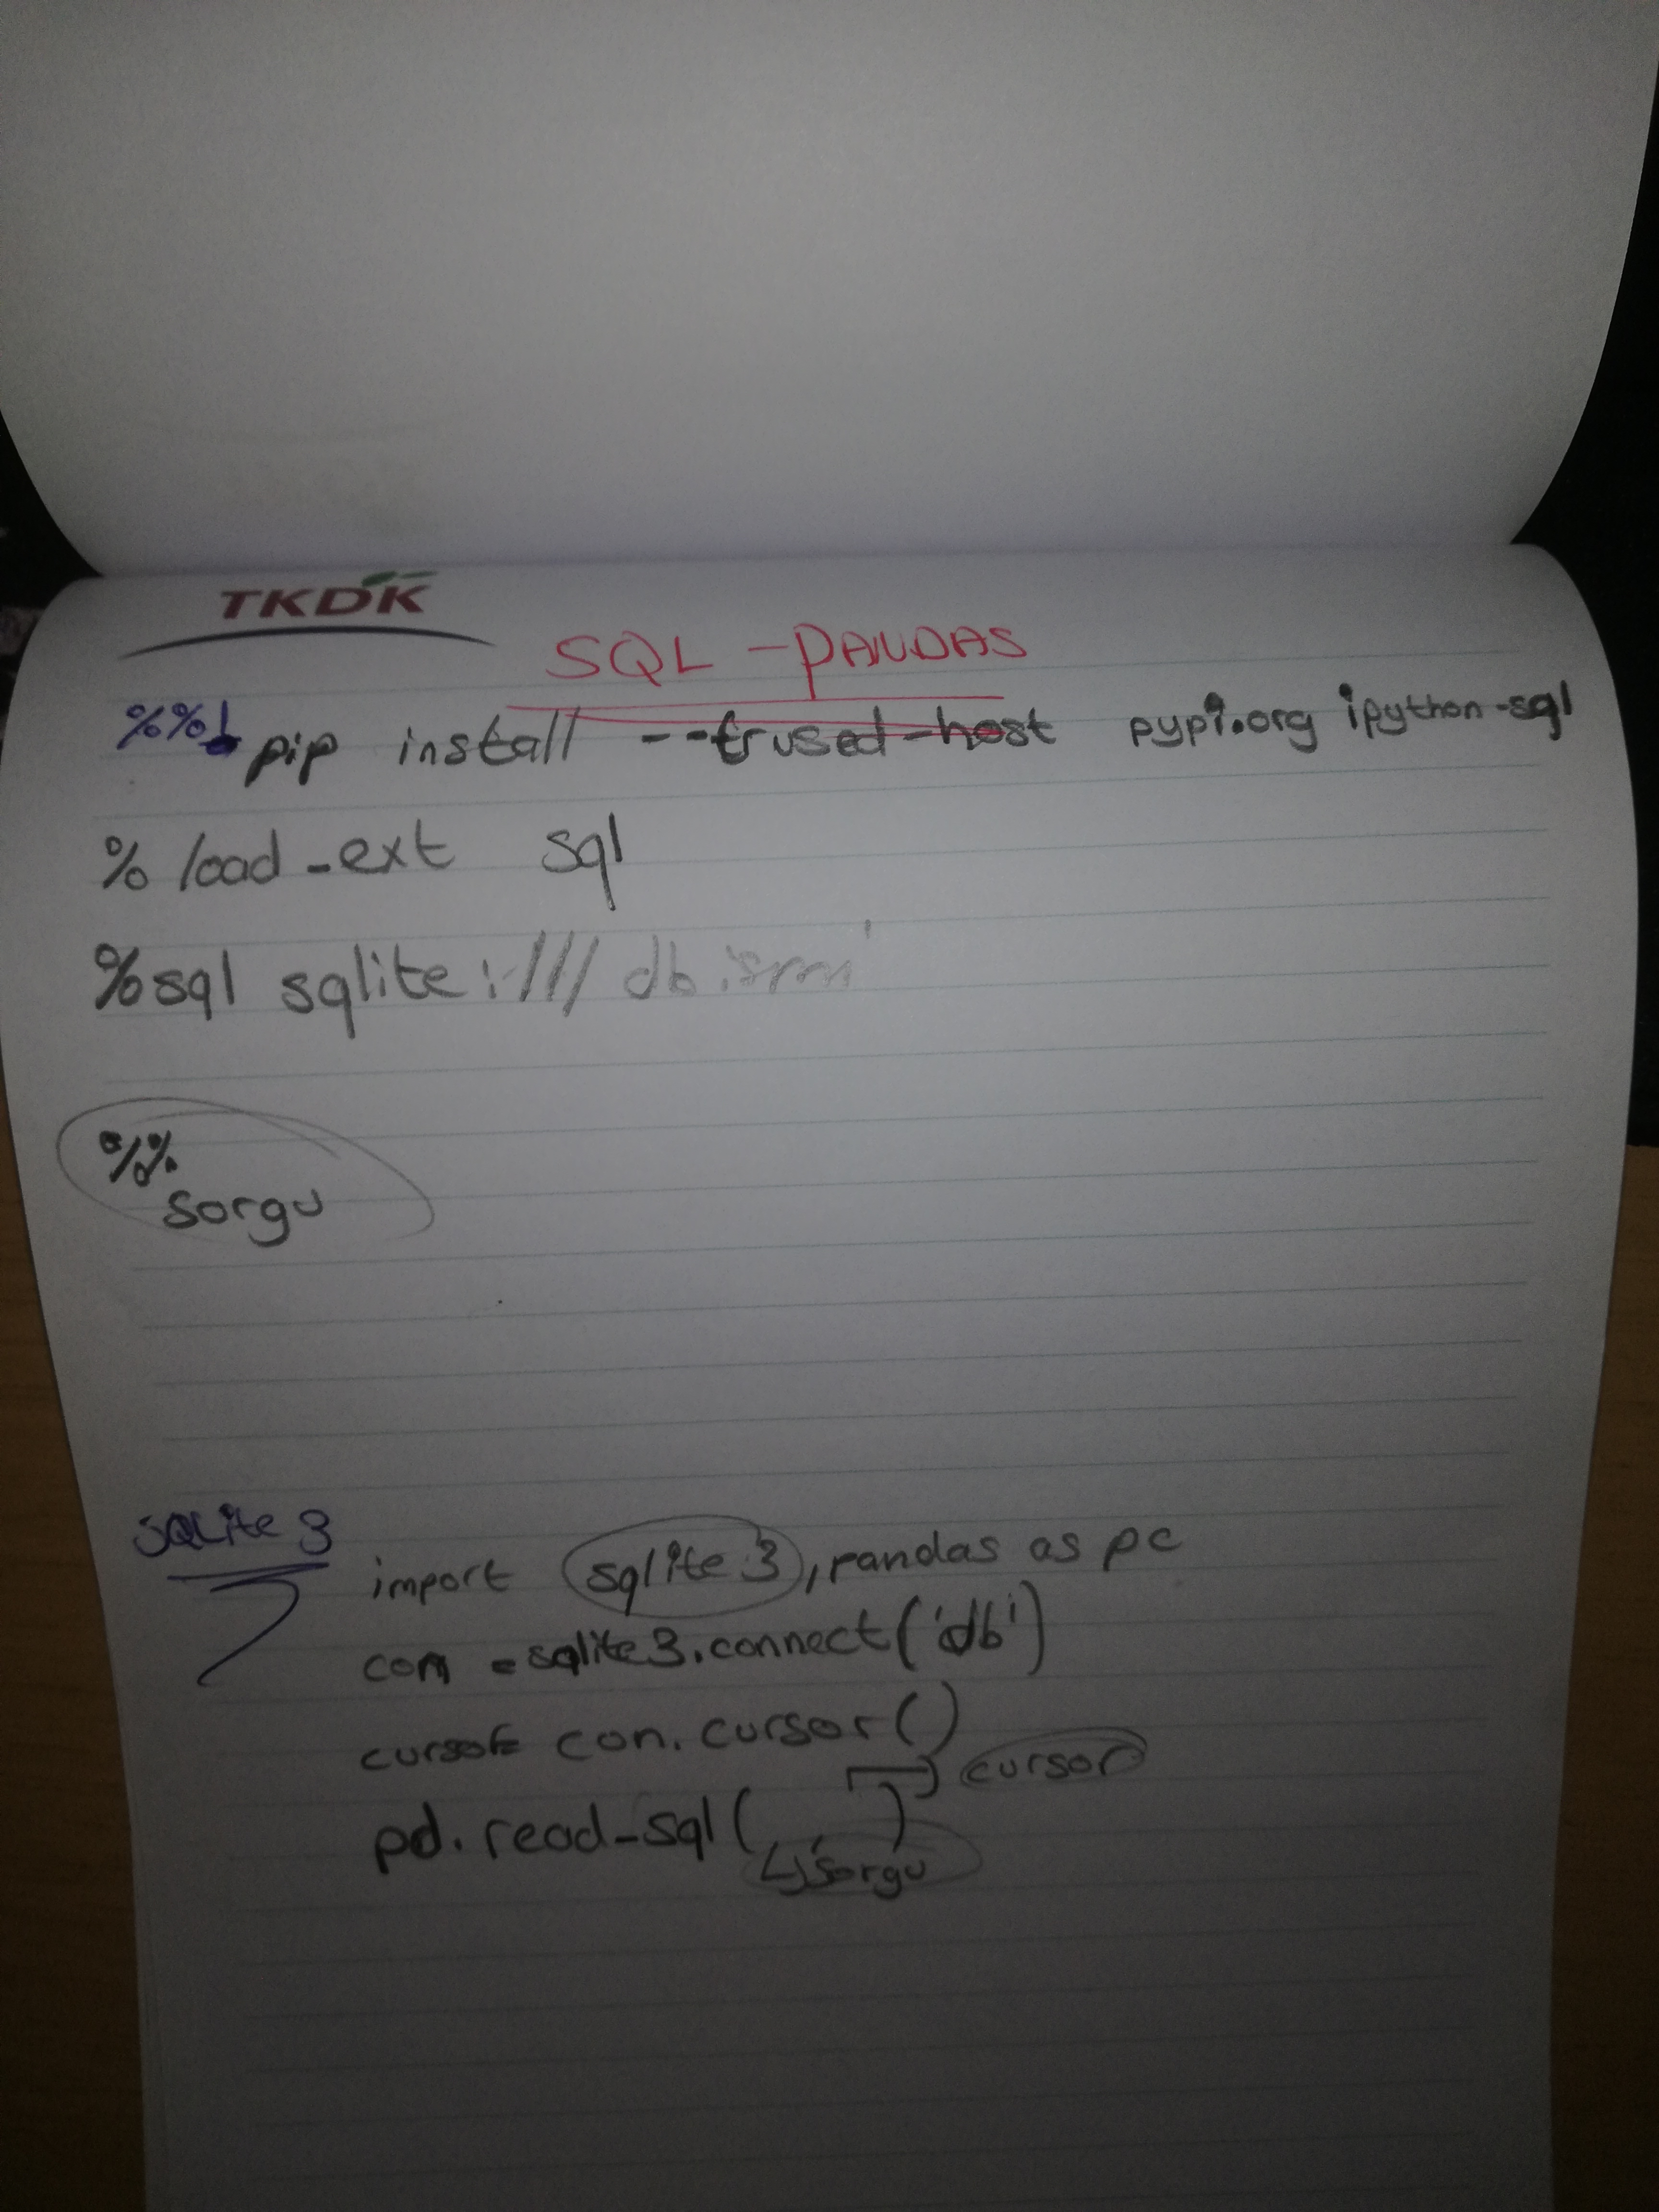 TKDK
SQL - PANDAS
%%! pip install --trused-host pypi.org ipython-sql
% load_ext sql
%sql sqlite:/// db.ismi
%%
sorgu
SQLite 3
import sqlite3, pandas as pc
con = sqlite3.connect('db')
cursor= con.cursor()
cursor
pd.read_sql( , )
sorgu